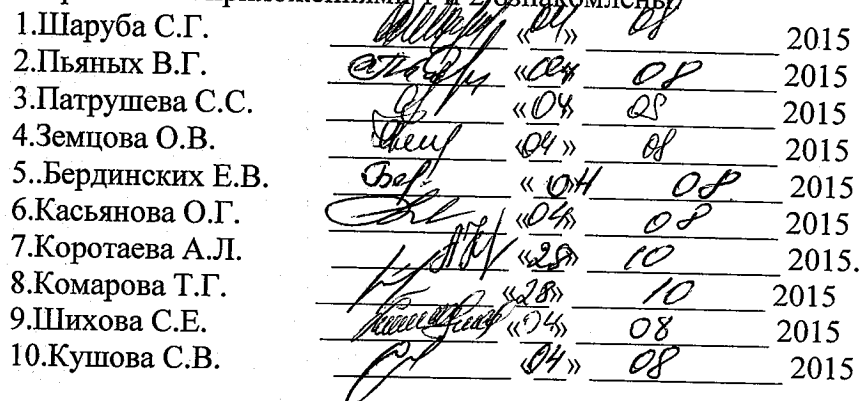 приложениями 1 и 2 ознакомлены
1.Шаруба С.Г. «04» 08 2015
2.Пьяных В.Г. «04» 08 2015
3.Патрушева С.С. «04» 08 2015
4.Земцова О.В. «04» 08 2015
5..Бердинских Е.В. «04» 08 2015
6.Касьянова О.Г. «04» 08 2015
7.Коротаева А.Л. «28» 10 2015.
8.Комарова Т.Г. «28» 10 2015
9.Шихова С.Е. «04» 08 2015
10.Кушова С.В. «04» 08 2015